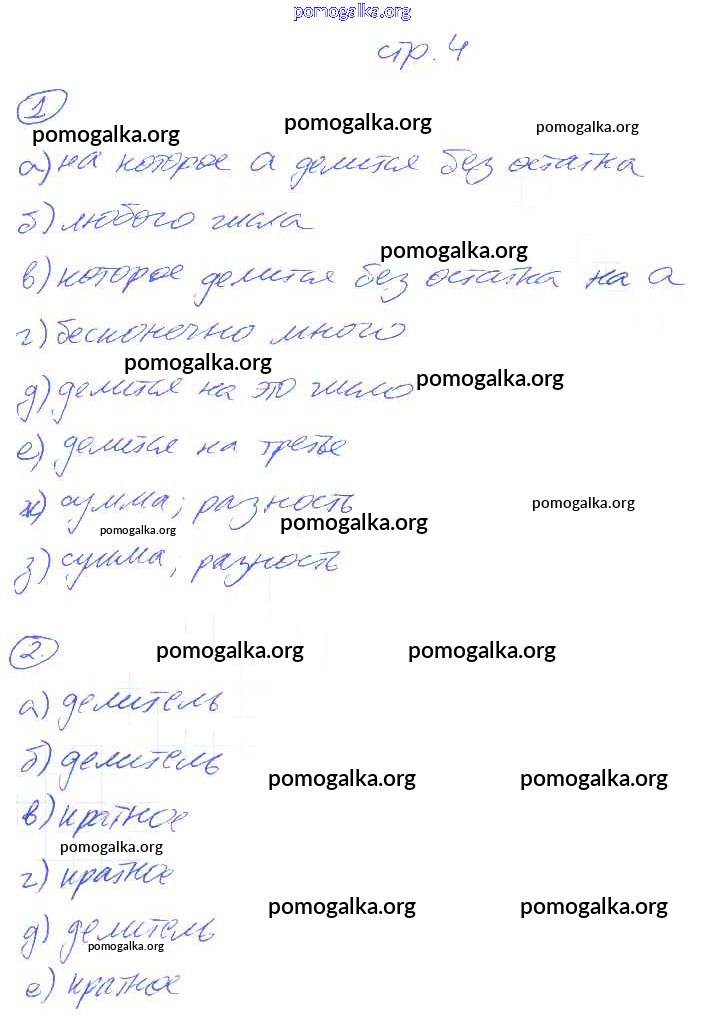 pomogalka.org
стр. 4
1
pomogalka.org pomogalka.org pomogalka.org
а) на которое а делится без остатка
б) любого числа
pomogalka.org
в) которое делится без остатка на а
г) бесконечно много
pomogalka.org pomogalka.org
д) делится на это число
е) делится на третье
ж) сумма; разность pomogalka.org
pomogalka.org pomogalka.org
з) сумма; разность
2. pomogalka.org pomogalka.org
а) делитель
б) делитель
pomogalka.org pomogalka.org
в) кратное
pomogalka.org
г) кратное
pomogalka.org pomogalka.org
д) делитель
pomogalka.org
е) кратное